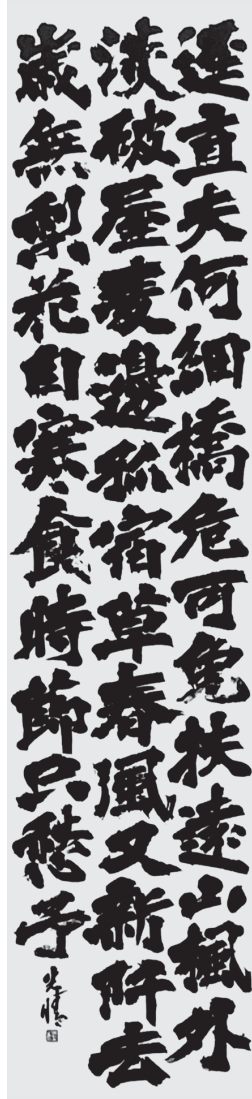 逕直夫何細橋危可免扶遠山楓外
淡破屋麥邊孤宿草春風又新阡去
歲無梨花自寒食時節只愁予